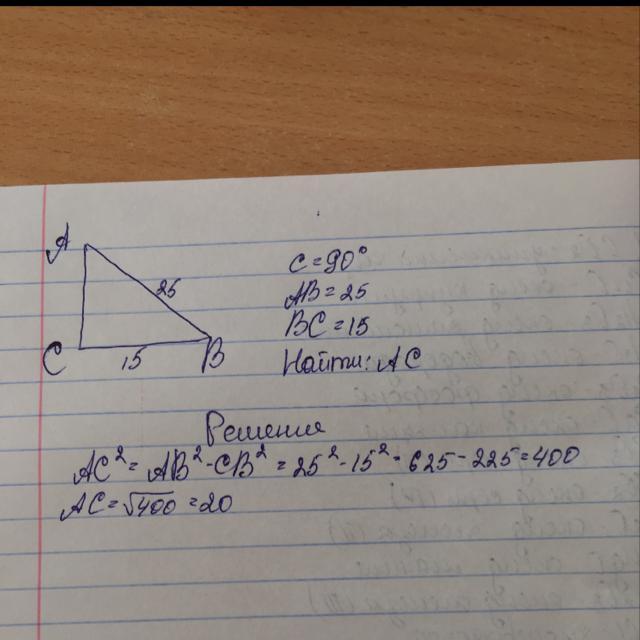 A
25
C
15
B
C = 90°
AB = 25
BC = 15
Найти: AC
Решение
AC² = AB² - CB² = 25² - 15² = 625 - 225 = 400
AC = √400 = 20